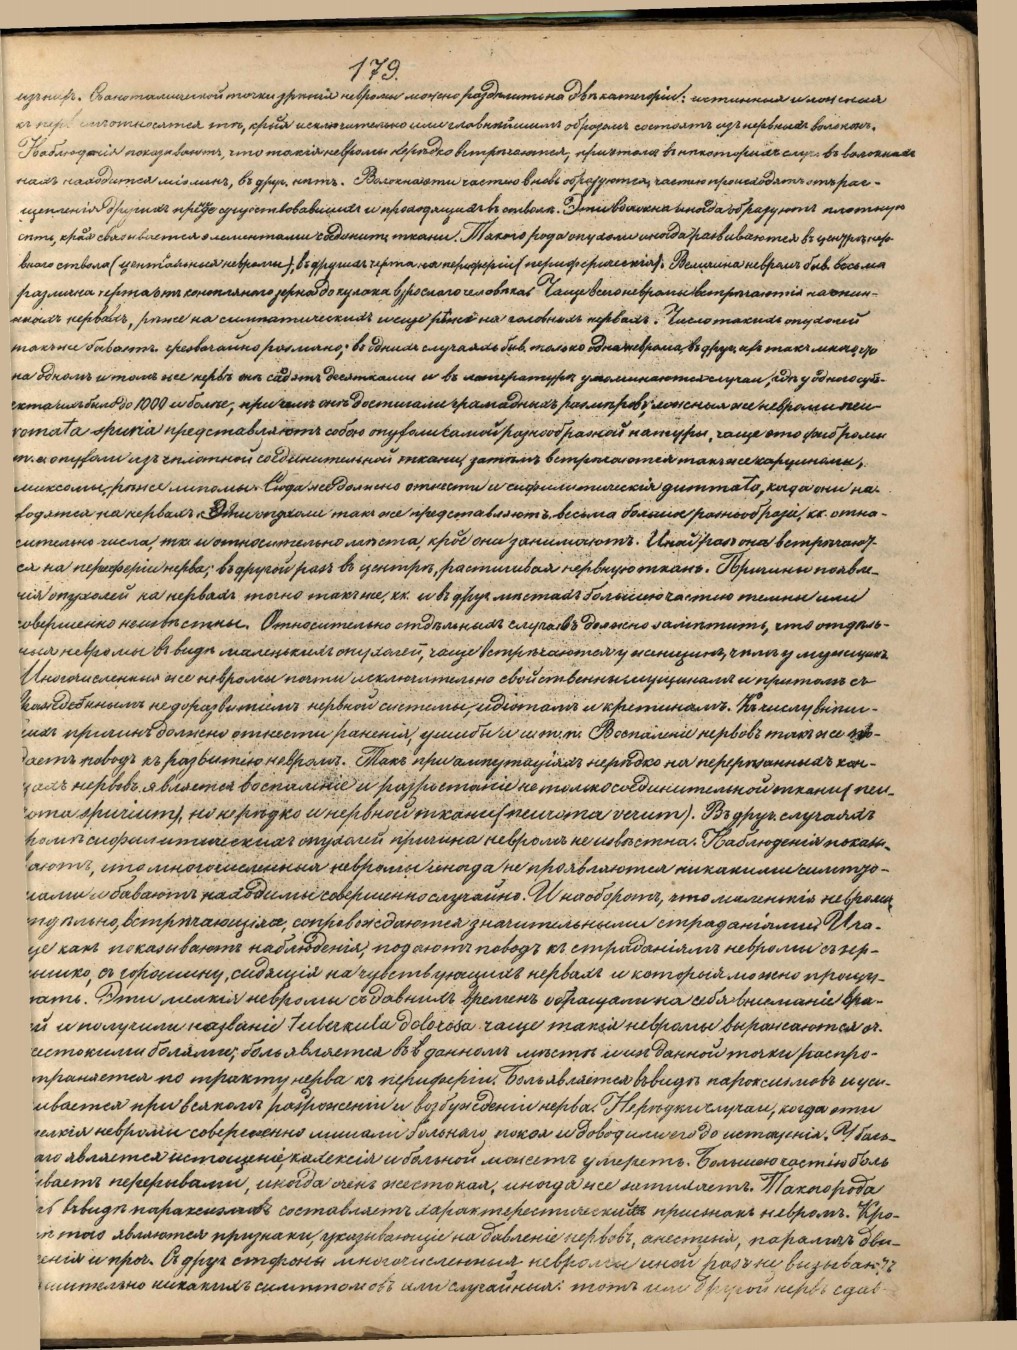 179.
изъ нихъ. Съ анатомической точки зрѣнія невромы можно раздѣлить на двѣ категоріи: истинныя и ложныя
къ перв относятся тѣ, крыя исключительно или главнѣйшимъ образомъ состоятъ изъ нервныхъ волоконъ.
Наблюденія показываютъ, что такія невромы нерѣдко встрѣчаются, при чемъ въ нѣкоторыхъ случ въ волокнахъ
нахъ находится міэлинъ, въ друг. нѣтъ. Волокна эти частью вновь образуются, частью происходятъ отъ рас-
щепленія другихъ прежде существовавшихъ и проходящихъ въ стволѣ. Эти волокна иногда образуютъ плотную
сѣть, края связывается элементами соединит. ткани. Такого рода опухоли иногда развиваются въ центрѣ нер-
внаго ствола (центральныя невромы), въ другихъ на периферіи (периферическія). Величина невромъ быв. весьма
различна конопляного зерна до кулака взрослаго человѣка. Чаще всего невромы встрѣчаются на спин-
ныхъ нервахъ, рѣже на симпатическихъ и еще рѣже на головныхъ нервахъ. Число такихъ опухолей
также бываетъ чрезвычайно различно; въ однихъ случаяхъ быв. только одна неврома, въ друг. ихъ такъ много, что
на одномъ и томъ же нервѣ онѣ сидятъ десятками и въ литературѣ упоминаются случаи, гдѣ у одного суб-
ъекта ихъ было до 1000 и болѣе, при чемъ онѣ достигали громадныхъ размѣровъ; ложныя же невромы neu-
romata spuria представляютъ собою опухоли самой разнообразной натуры, чаще это фибромы
т. е. опухоли изъ плотной соединительной ткани, затѣмъ встрѣчаются также карциномы,
миксомы, рѣже липомы. Сюда же должно отнести и сифилитическія gummata, когда они на-
ходятся на нервахъ. Эти опухоли также представляютъ весьма большое разнообразіе, кк. отно-
сительно числа, тк. и относительно мѣста, крое они занимаютъ. Иной разъ она встрѣчают-
ся на периферіи нерва; въ другой разъ въ центрѣ, растягивая нервную ткань. Причины появле-
нія опухолей на нервахъ точно также, кк. и въ друг. мѣстахъ большею частью темны или
совершенно неизвѣстны. Относительно отдѣльныхъ случаевъ должно замѣтить, что отдѣль-
ныя невромы въ видѣ маленькихъ опухолей, чаще встрѣчаются у женщинъ, чѣмъ у мужщинъ.
Многочисленныя же невромы почти исключительно свойственны мущинамъ и притомъ съ
недоразвитіемъ нервной системы, идіотамъ и кретинамъ. Къ числу внѣш-
нихъ причинъ должно отнести раненія, ушибы и т. п. Воспаленіе нервовъ также по-
даетъ поводъ къ развитію невромъ. Такъ при ампутаціяхъ нерѣдко на перерѣзанныхъ кон-
цахъ нервовъ является воспаленіе и разростаніе не только соединительной ткани (neu-
roma spurium), но нерѣдко и нервной ткани (neuroma verum). Въ друг. случаяхъ
кромѣ сифилитическихъ опухолей причина невромъ не извѣстна. Наблюденія показы-
ваютъ, что многочисленныя невромы иногда не проявляются никакими симпто-
мами и бываютъ находимы совершенно случайно. И наоборотъ, что маленькія невромы,
отдѣльно встрѣчающіяся, сопровождаются значительными страданіями. Ча-
ще какъ показываютъ наблюденія, подаютъ поводъ къ страданіямъ невромы съ зер-
нышко, съ горошину, сидящія на чувствующихъ нервахъ и которыя можно прощу-
пать. Эти мелкія невромы съ давнихъ временъ обращали на себя вниманіе вра-
чей и получили названіе tuberkula dolorosa чаще такія невромы выражаются оч.
жестокими болями; боль является въ данномъ мѣстѣ и изъ данной точки распро-
страняется по тракту нерва къ периферіи. Боль является въ видѣ пароксизмовъ и уси-
ливается при всякомъ раздраженіи и возбужденіи нерва. Нерѣдки случаи, когда эти
мелкія невромы совершенно лишали больнаго покоя и доводили его до истощенія. У боль-
наго является истощеніе, кахексія и больной можетъ умереть. Большею частію боль
бываетъ перерывами, иногда очень жестокая, иногда же затихаетъ. Такого рода
боль въ видѣ параксизмовъ составляетъ характерестическій признакъ невромъ. Кро-
мѣ того являются признаки, указывающіе на давленіе нервовъ, анестезія, параличъ дви-
женія и проч. Съ друг. стороны многочисленныя невромы иной разъ не вызываютъ
рѣшительно никакихъ симптомовъ или случайныя: тотъ или другой нервъ сдав-